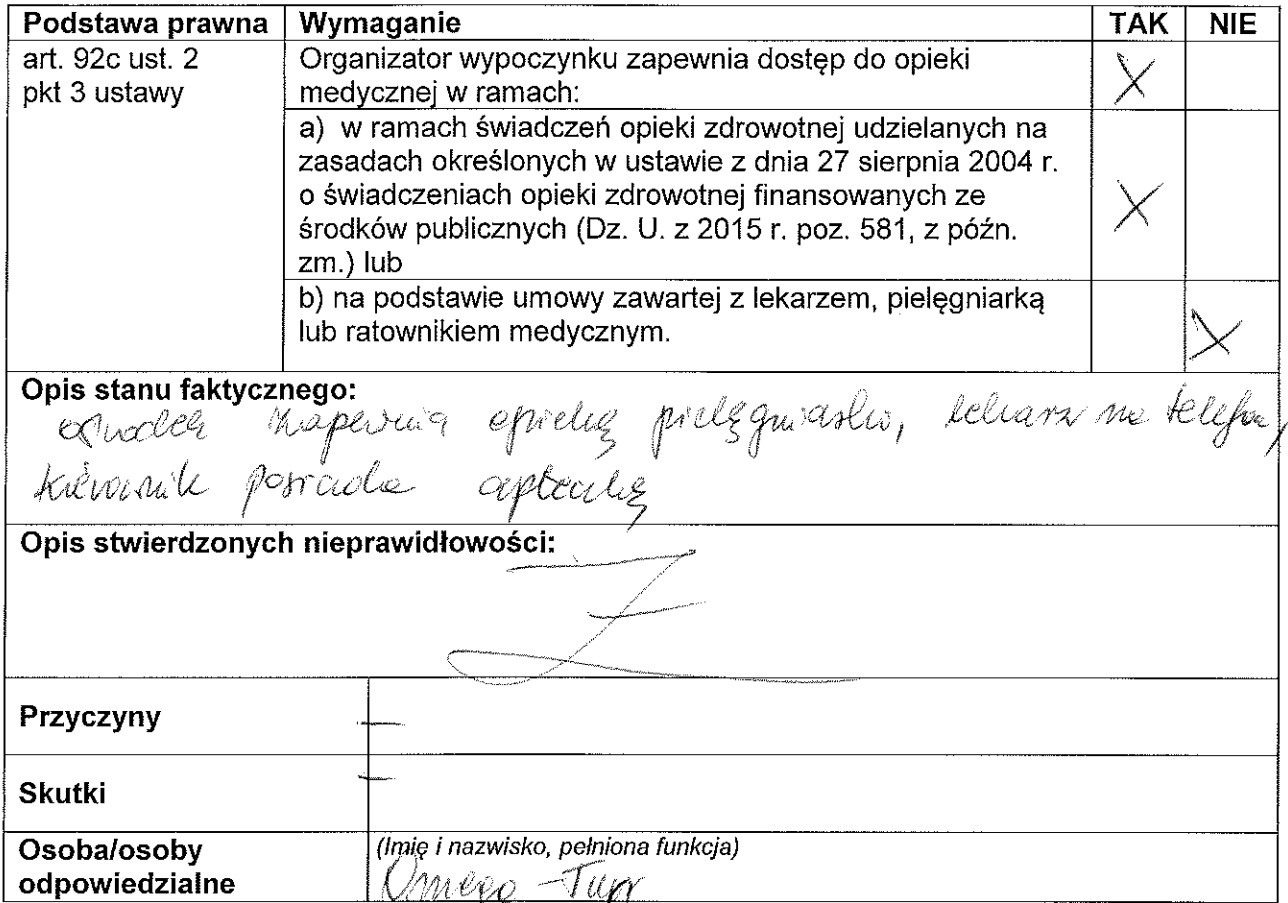 Podstawa prawna Wymaganie TAK NIE
art. 92c ust. 2
pkt 3 ustawy
Organizator wypoczynku zapewnia dostęp do opieki
medycznej w ramach: X
a) w ramach świadczeń opieki zdrowotnej udzielanych na
zasadach określonych w ustawie z dnia 27 sierpnia 2004 r.
o świadczeniach opieki zdrowotnej finansowanych ze
środków publicznych (Dz. U. z 2015 r. poz. 581, z późn.
zm.) lub X
b) na podstawie umowy zawartej z lekarzem, pielęgniarką
lub ratownikiem medycznym. X
Opis stanu faktycznego:
ośrodek zapewnia opiekę lekarz na telefon,
kierownik posiada apteczkę
Opis stwierdzonych nieprawidłowości:
Przyczyny –
Skutki –
Osoba/osoby
odpowiedzialne
(Imię i nazwisko, pełniona funkcja)
Omega -Tur